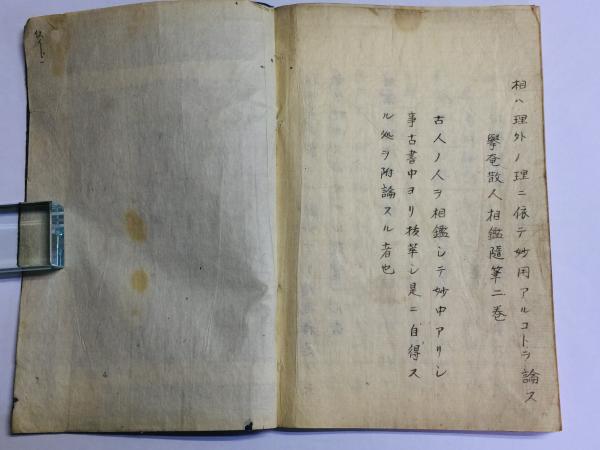 相ハ理外ノ理ニ依テ妙用アルコトヲ論ス
散人相鑑隨筆二巻
古人ノ人ヲ相鑑シテ妙中アリシ
事古書中ヨリ抜萃シ是ニ自得ス
ル処ヲ附論スル者也